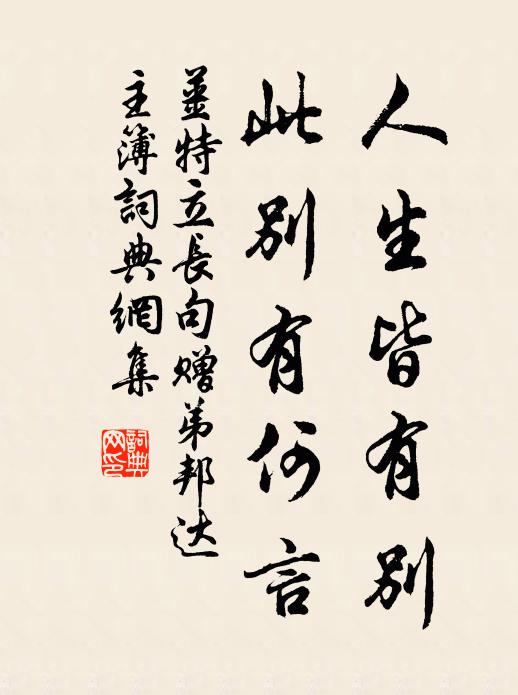 人生皆有别
此别有何言
姜特立長句赠弟邦达
主簿詞典網集
詞典
网印